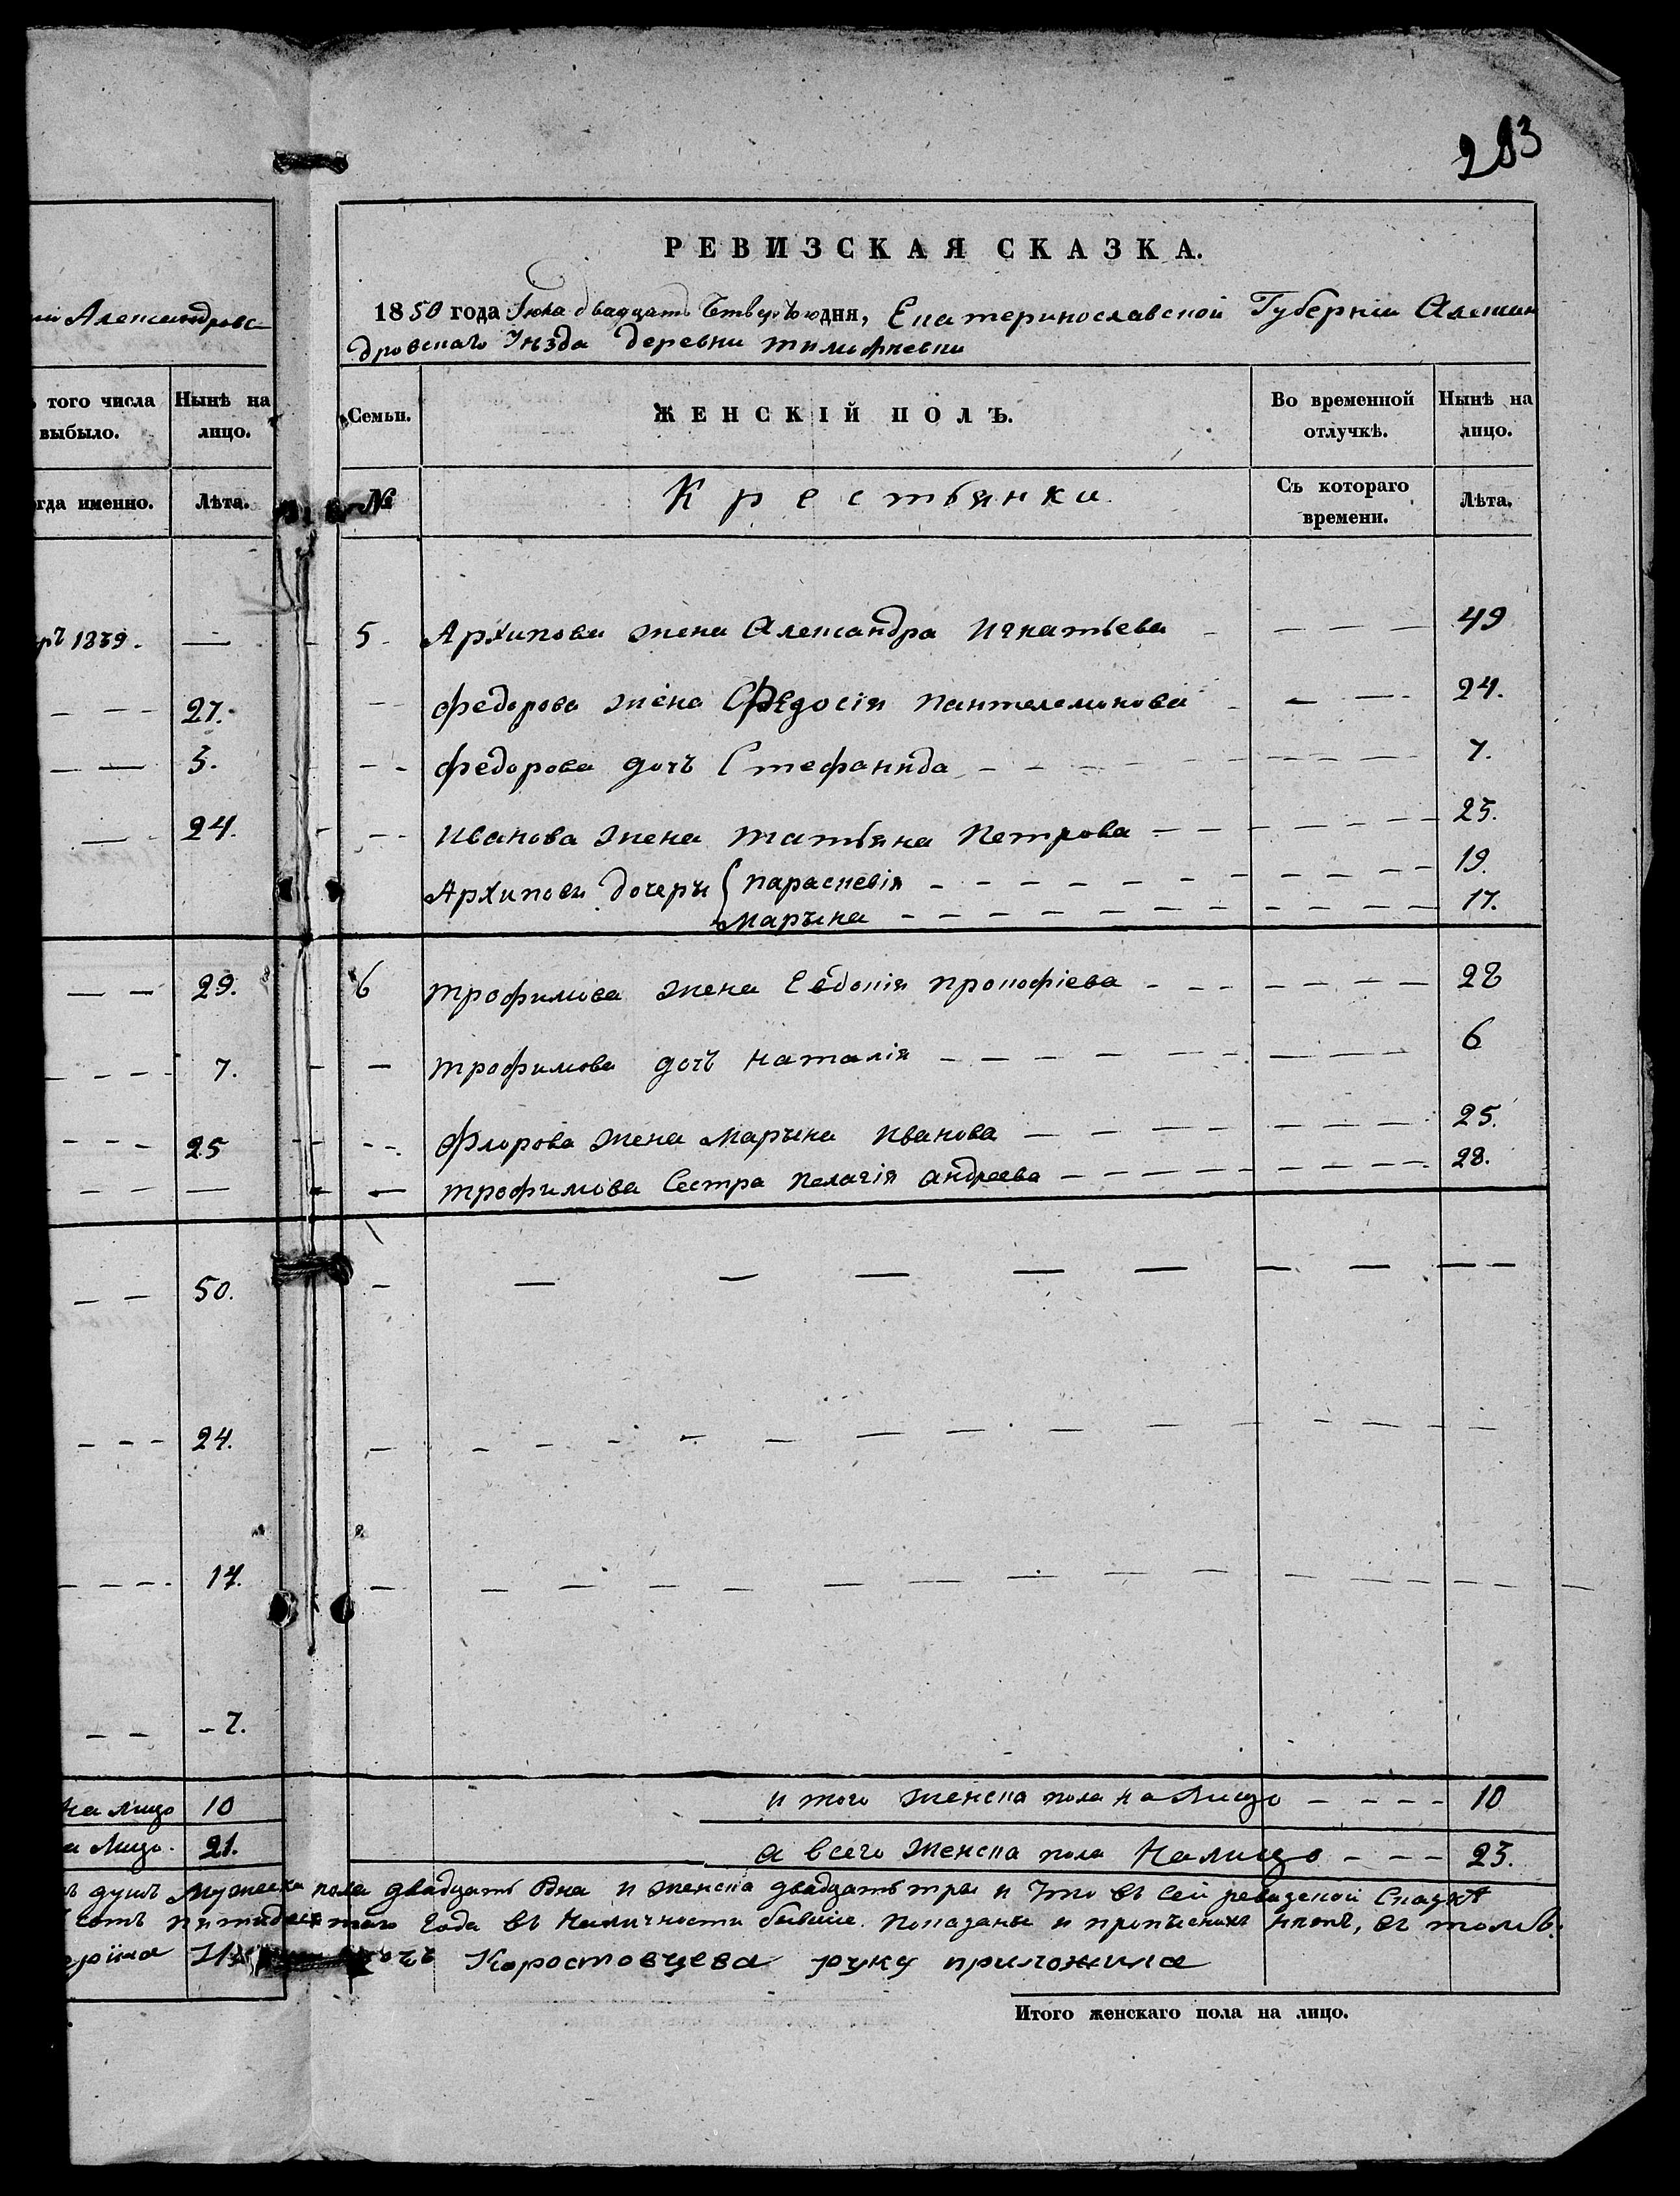 283
РЕВИЗСКАЯ СКАЗКА.
Александровс-
1850 года Іюля двадцать Четвертого дня, Екатеринославской Губерніи Алексан
дровскаго Уѣзда деревни тимофѣевки
того числа выбыло.
Нынѣ на лицо.
Семьи.
ЖЕНСКІЙ ПОЛЪ.
Во временной отлучкѣ.
Нынѣ на лицо.
гда именно.
Лѣта.
№
Крестьянки
Съ котораго времени.
Лѣта.
1839. —
5 Архипова жена Александра Игнатьева - - - 49
27.
Федорова жена Федосія Пантелемонова - - 24.
3.
Федорова дочъ Стефанида - - - 7.
24.
Иванова жена татьяна Петрова - - - 23.
Архиповы дочери { параскевія - - - 19.
марына - - - 17.
29.
6 трофимова жена Евдокія прокофіева - - - 28
7.
трофимова дочъ наталія - - - 6
25
Флорова жена марына иванова - - - 25.
трофимова Сестра пелагія андреева - - - 28.
50.
24.
14.
7.
на лицо 10
и того женска пола на лицо - - - - 10
а лицо. 21.
а всего женска пола налицо - - - 23.
душъ мужеска пола двадцать одна и женска двадцать три и что въ сей ревизской Сказкѣ
сотъ пятидесятого года въ наличности бывшие. показаны и пропъсныхъ нѣтъ, въ томъ.
Коростовцева руку приложила
Итого женскаго пола на лицо.